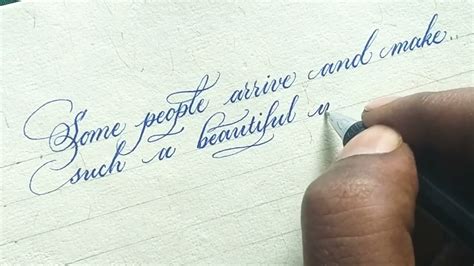 Some people arrive and make..
such a beautiful